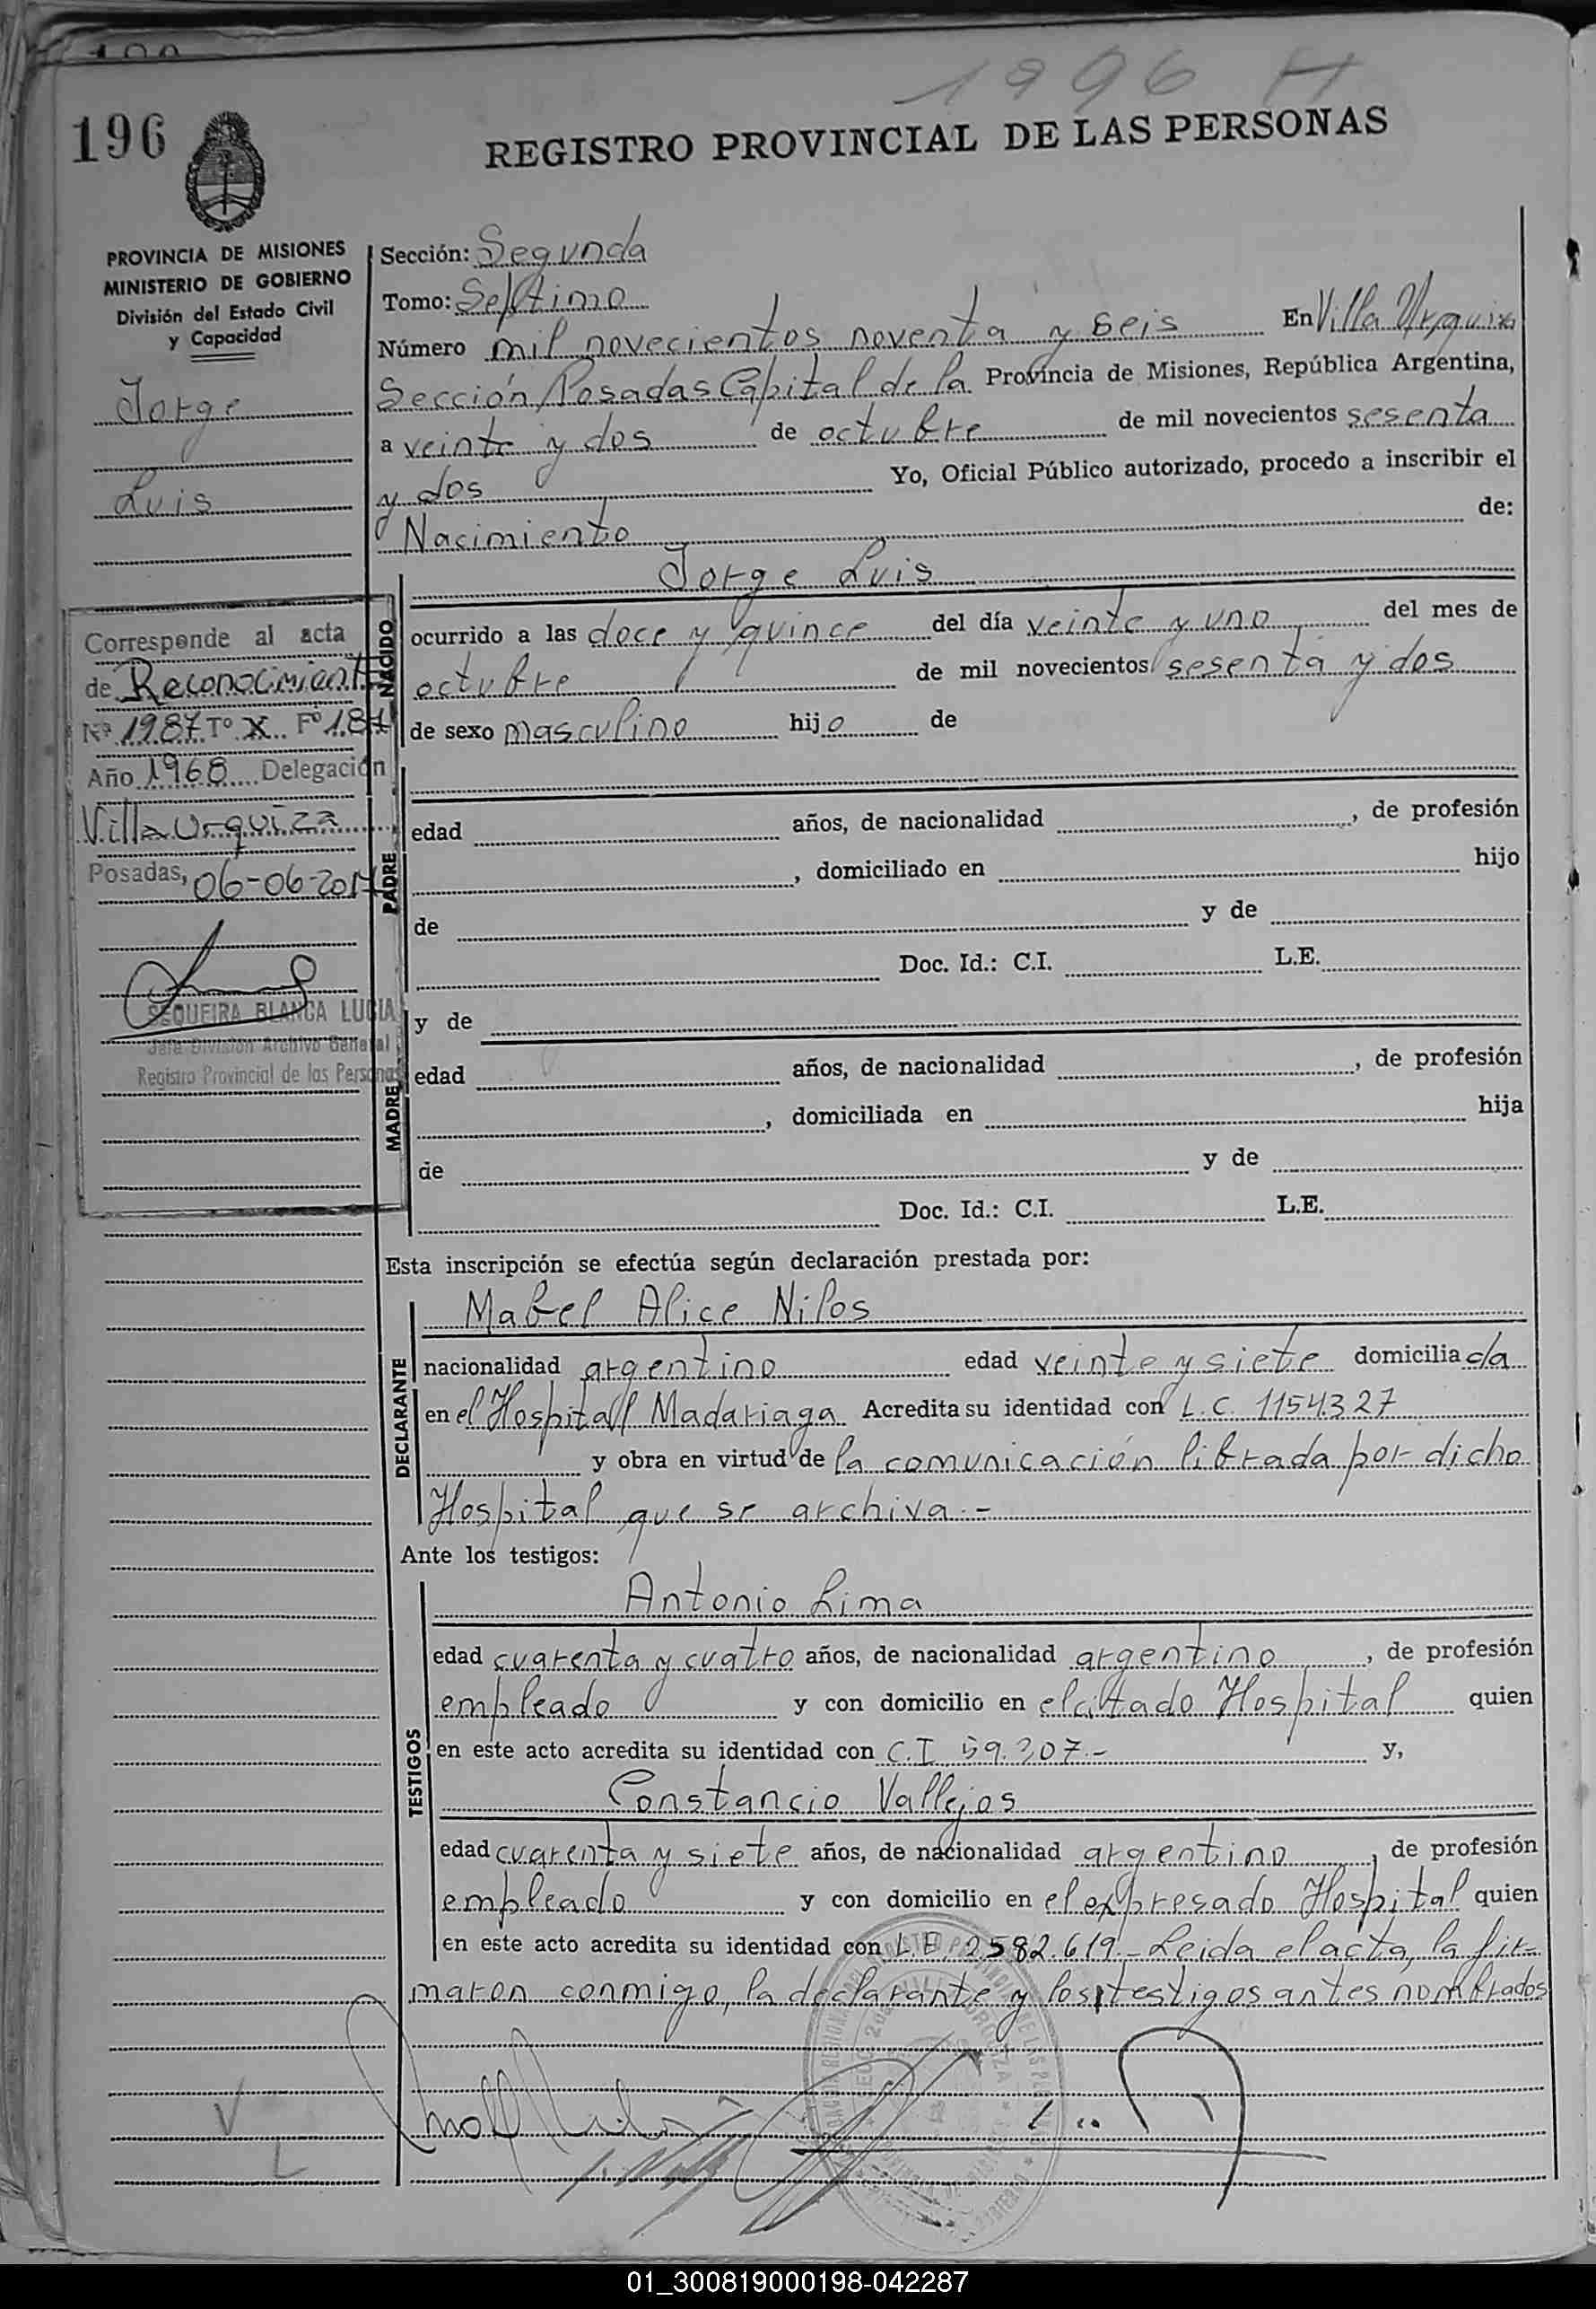 1996 H
196
REGISTRO PROVINCIAL DE LAS PERSONAS
PROVINCIA DE MISIONES
MINISTERIO DE GOBIERNO
División del Estado Civil
y Capacidad
Jorge
Luis
Corresponde al acta
de Reconocimient
Nº 1987 Tº X Fº 187
Año 1968 Delegación
Villa Urquiza
Posadas, 06-06-2017
SEQUEIRA BLANCA LUCIA
Jefa División Archivo General
Registro Provincial de las Personas
Sección: Segunda
Tomo: Septimo
Número mil novecientos noventa y seis En Villa Urquiza
Sección Posadas Capital de la Provincia de Misiones, República Argentina,
a veinte y dos de octubre de mil novecientos sesenta
y dos Yo, Oficial Público autorizado, procedo a inscribir el
Nacimiento de:
NACIDO
Jorge Luis
ocurrido a las doce y quince del día veinte y uno del mes de
octubre de mil novecientos sesenta y dos
de sexo masculino hijo de
PADRE
edad años, de nacionalidad , de profesión
, domiciliado en hijo
de y de
Doc. Id.: C.I. L.E.
MADRE
y de
edad años, de nacionalidad , de profesión
, domiciliada en hija
de y de
Doc. Id.: C.I. L.E.
Esta inscripción se efectúa según declaración prestada por:
DECLARANTE
Mabel Alice Nilos
nacionalidad argentino edad veinte y siete domiciliada
en el Hospitall Madariaga Acredita su identidad con L.C. 1154327
y obra en virtud de la comunicación librada por dicho
Hospital que se archiva.-
Ante los testigos:
TESTIGOS
Antonio Lima
edad cuarenta y cuatro años, de nacionalidad argentino, de profesión
empleado y con domicilio en el citado Hospital quien
en este acto acredita su identidad con C.I 59.307.- y,
Constancio Vallejos
edad cuarenta y siete años, de nacionalidad argentino, de profesión
empleado y con domicilio en el expresado Hospital quien
en este acto acredita su identidad con L.E. 2582.619.- Leida el acta, la fir-
maron conmigo, la declarante y los testigos antes nombrados
01_300819000198-042287